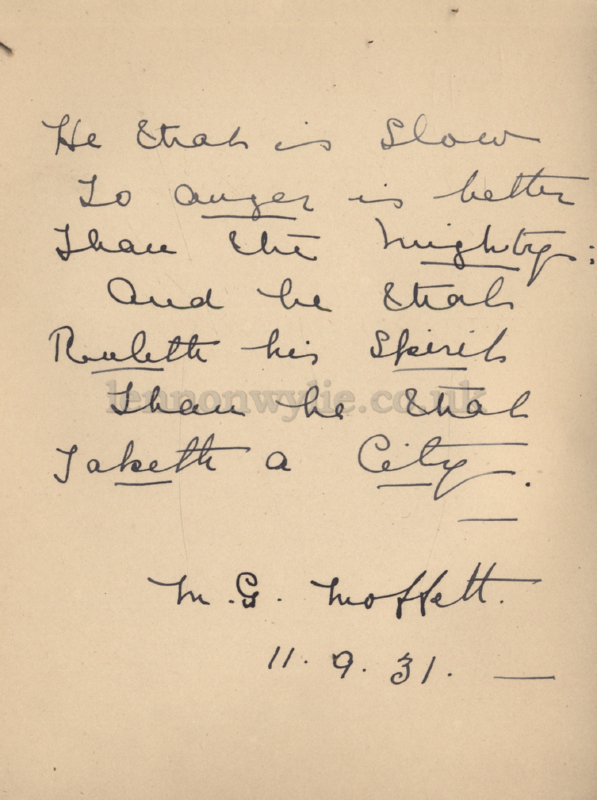 He that is Slow
To anger is better
Than the Mighty;
And he that
Ruleth his Spirit
lennonwylie.co.uk
Than he that
Taketh a City.
M. G. Moffett.
11. 9. 31. —